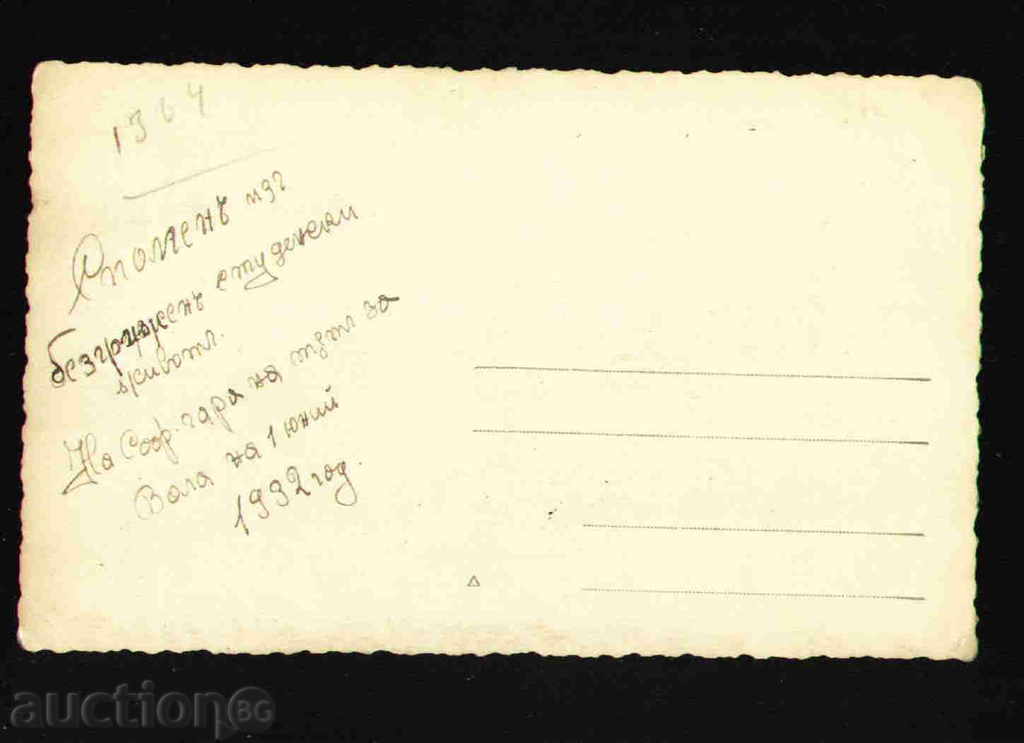 1364
Споменъ изъ
безгриженъ студенски
животъ.
На Соф. гара на пътъ за
на 1 юний
1932 год.
auctionBG